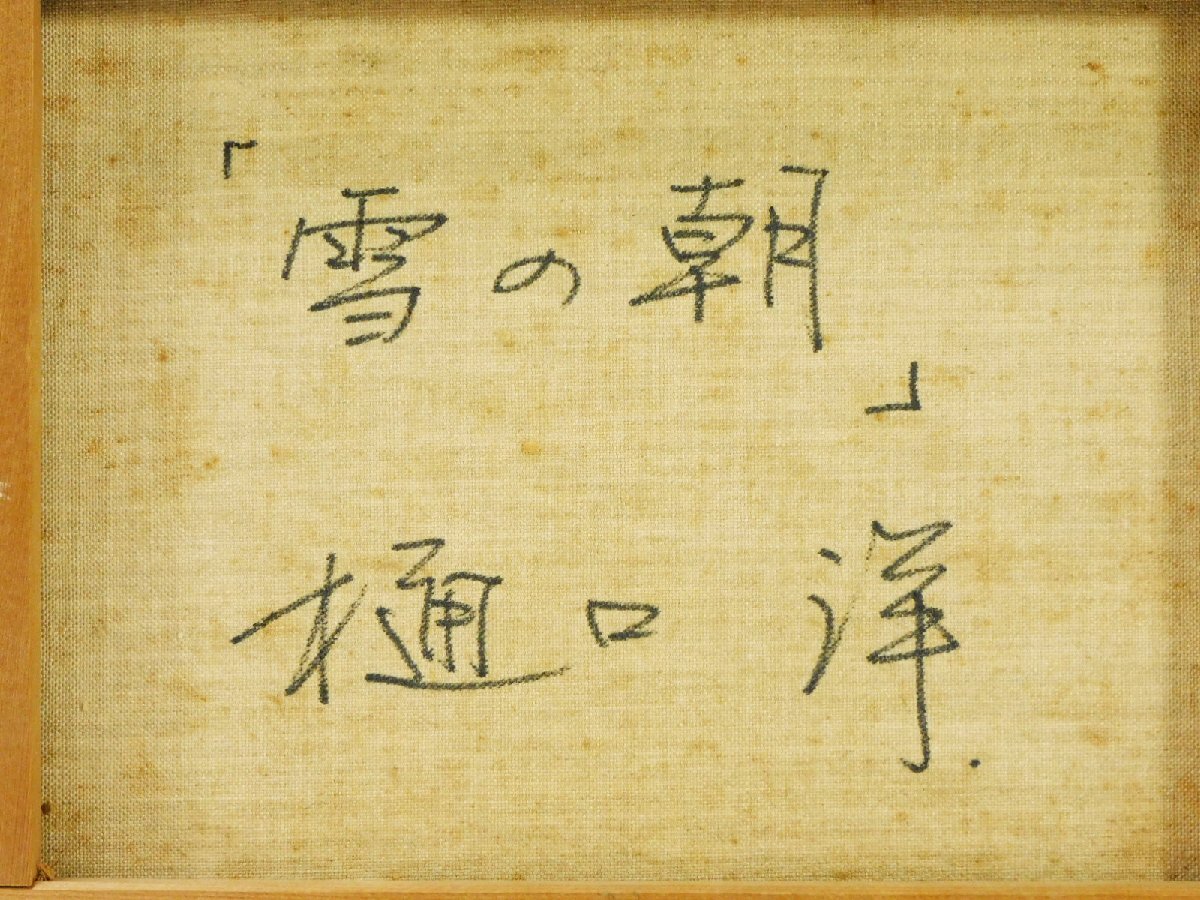 「雪の朝」
樋口 洋.